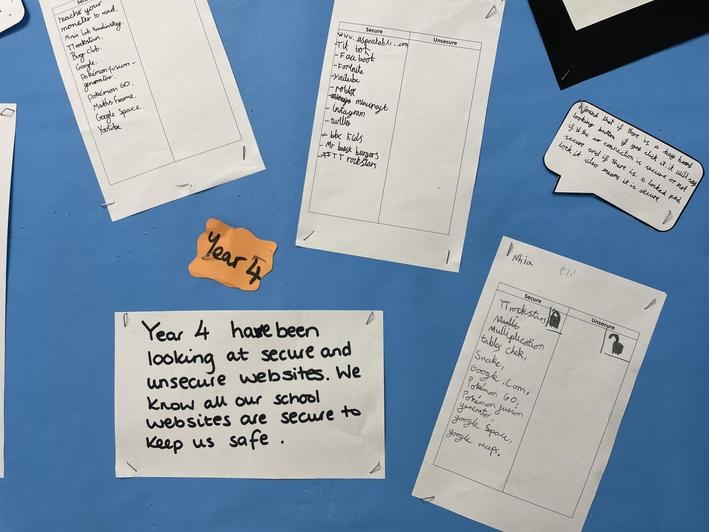 reache your
monster to read.
TTrockstars.
Bug club.
Google.
Pokémon fusion-
generator.
Pokémon GO.
Maths Frame.
Google Space.
YouTube
Secure
Unsecure
Tik tok
- Facboot
- Fortnite
- roblox
minecraft
- instagram
- bbc Kids
- Mr beast burgers
TT rockstars
if there is a
looking button if you click it it will say
if the connection is secure or not
secure and if there is a locked pad
lock it also means it is secure
Year 4
Year 4 have been
looking at secure and
unsecure websites. We
know all our school
websites are secure to
keep us safe.
Nhia
Secure
Unsecure
TTrockstars
Multiplication
tables
Snake,
Google.Com,
Pokémon GO,
Pokémon fusion
generator,
google Space,
google maps,